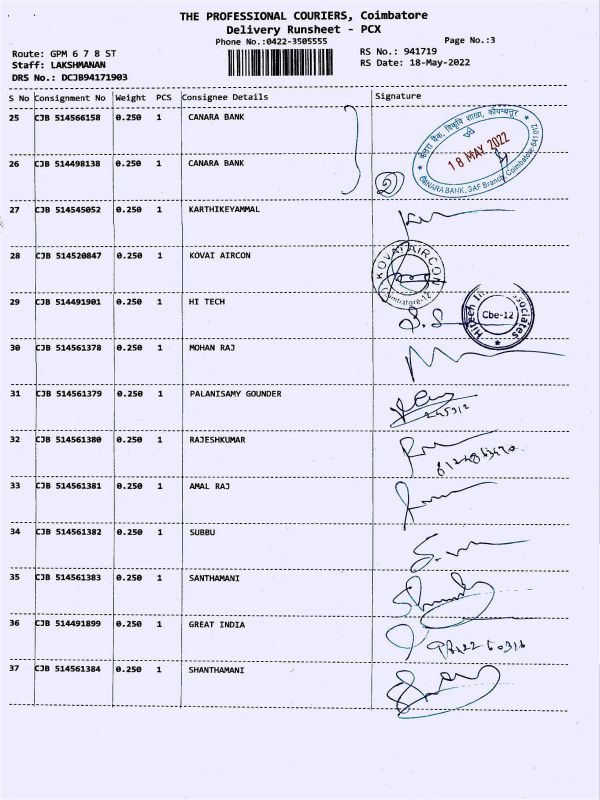 THE PROFESSIONAL COURIERS, Coimbatore
Delivery Runsheet - PCX
Phone No.:0422-3505555
Page No.:3
Route: GPM 6 7 8 ST
RS No.: 941719
Staff: LAKSHMANAN
RS Date: 18-May-2022
DRS No.: DCJB94171903
S No Consignment No Weight PCS Consignee Details Signature
25 CJB 514566158 0.250 1 CANARA BANK
केनरा बैंक,
18 MAY 2022
CANARA BANK, SAF Branch, Coimbatore-641 012
26 CJB 514498138 0.250 1 CANARA BANK
2
27 CJB 514545052 0.250 1 KARTHIKEYAMMAL
28 CJB 514520847 0.250 1 KOVAI AIRCON
KOVAI AIRCON
Coimbatore-12
29 CJB 514491901 0.250 1 HI TECH
Cbe-12
30 CJB 514561378 0.250 1 MOHAN RAJ
31 CJB 514561379 0.250 1 PALANISAMY GOUNDER
32 CJB 514561380 0.250 1 RAJESHKUMAR
33 CJB 514561381 0.250 1 AMAL RAJ
34 CJB 514561382 0.250 1 SUBBU
35 CJB 514561383 0.250 1 SANTHAMANI
36 CJB 514491899 0.250 1 GREAT INDIA
37 CJB 514561384 0.250 1 SHANTHAMANI